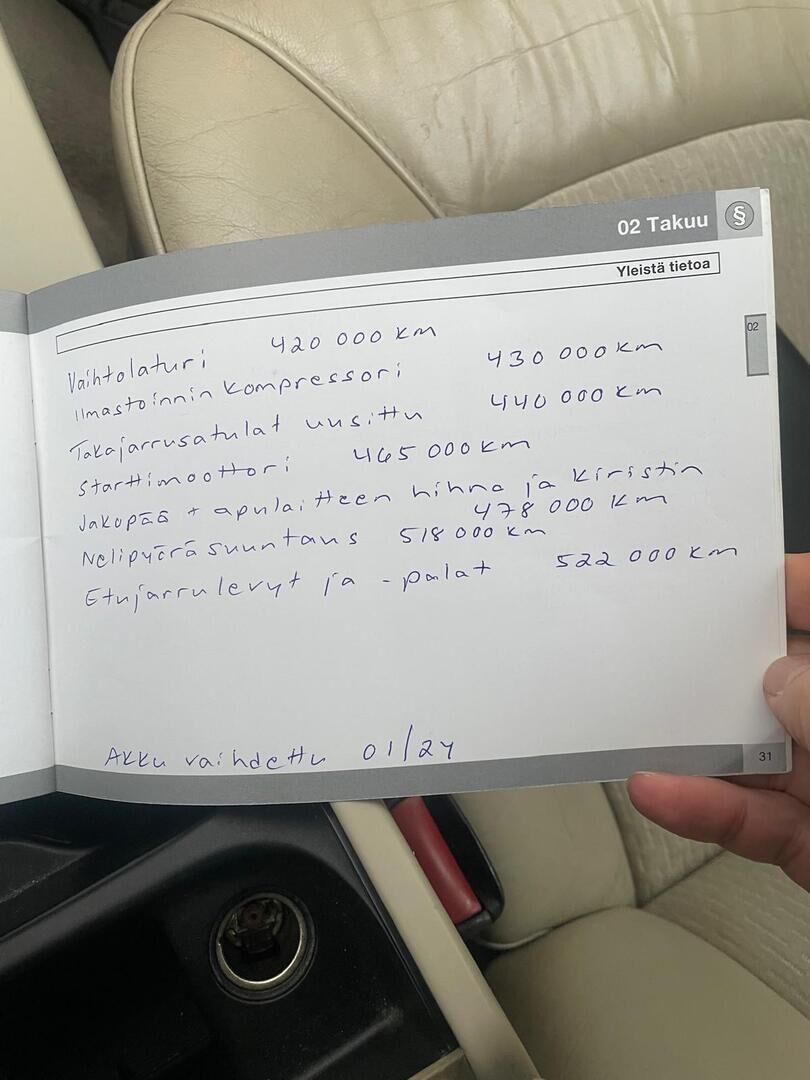 02 Takuu
§
Yleistä tietoa
02
Vaihtolaturi 420 000 km
Ilmastoinnin kompressori 430 000 km
Takajarrusatulat uusittu 440 000 km
Starttimoottori 465 000 km
Jakopää + apulaitteen hihna ja kiristin
478 000 km
Nelipyöräsuuntaus 518 000 km
Etujarrulevyt ja -palat 522 000 km
Akku vaihdettu 01/24
31